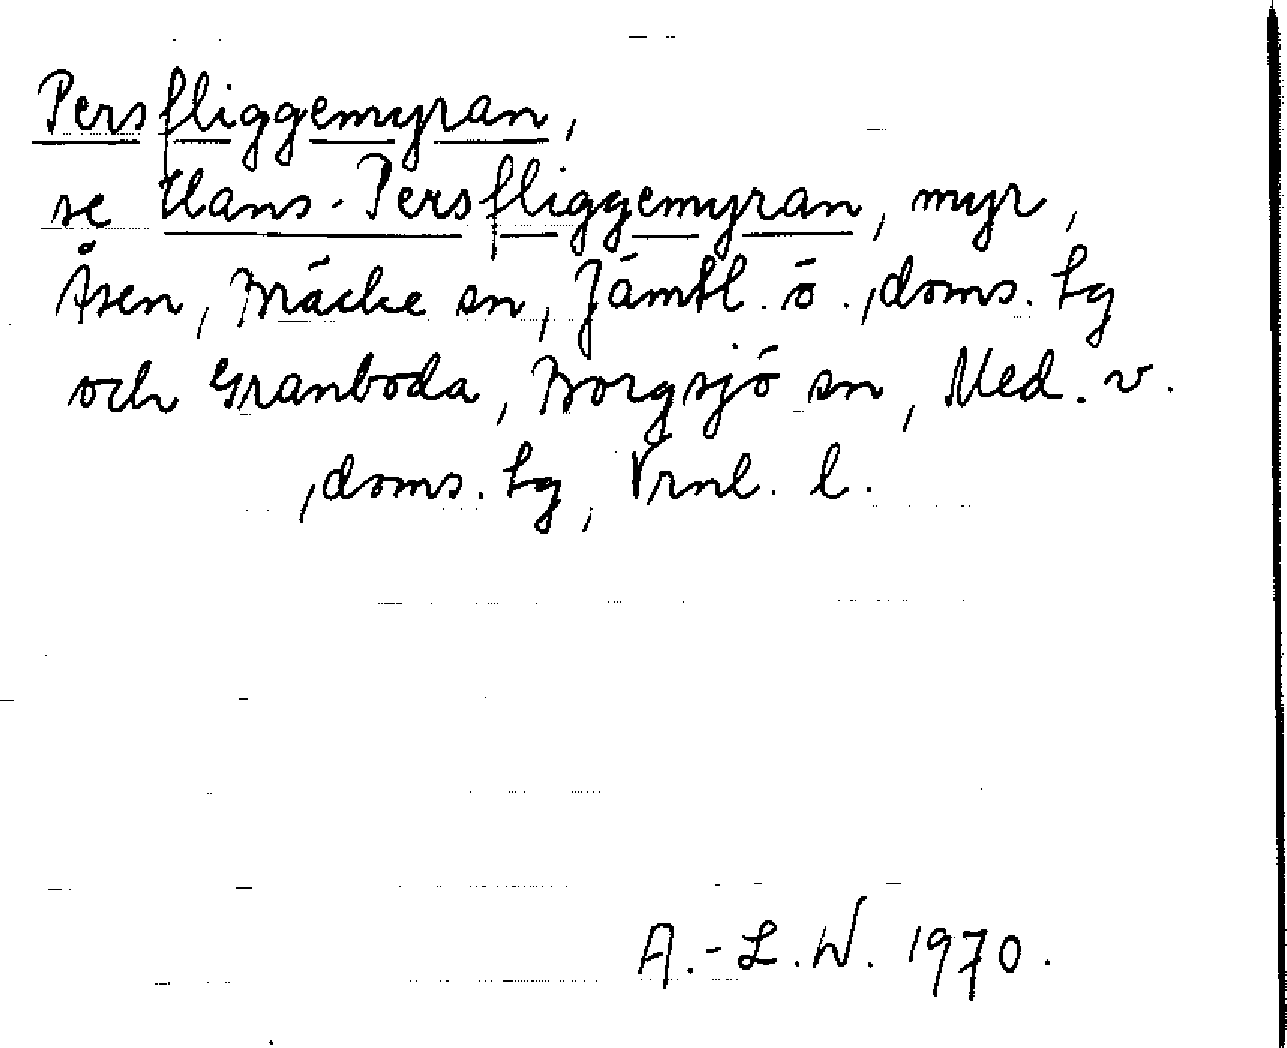 Persfliggemyran,
se Hans-Persfliggemyran, myr,
Åsen, Bräcke sn, Jämtl. ö., doms. tg
och Granboda, Borgsjö sn, Med. v.
, doms. tg, Vrnl. l.
A.-L.W. 1970.